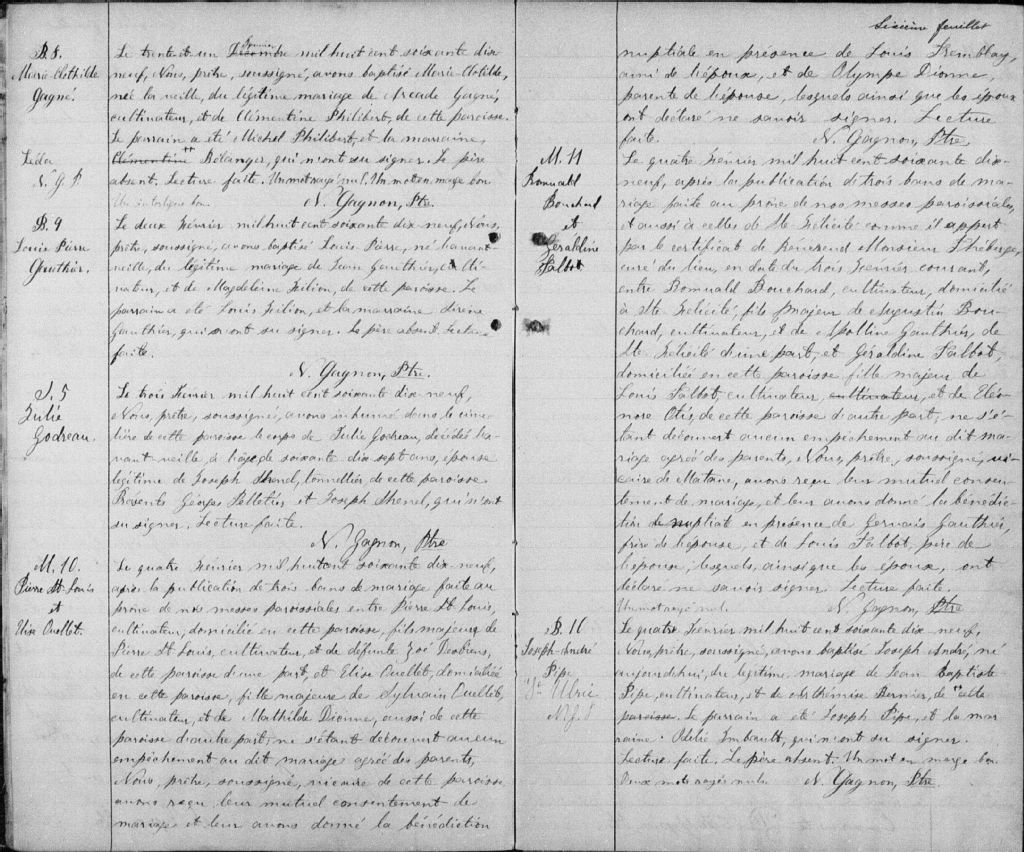 B. 8.
Marie-Clothilde
Gagné.
Léda
N. G. P.
Le trente et un Décembre Janvier mil huit cent soixante dix
neuf, Nous, prêtre, soussigné, avons baptisé Marie-Clotilde,
née la veille, du légitime mariage de Arcade Gagné,
cultivateur, et de Clémentine Philibert, de cette paroisse.
Le parrain a été Michel Philibert, et la marraine
Clémentine Bélanger, qui n'ont su signer. Le père
absent. Lecture faite. Un mot rayé nul. Un mot en marge bon.
Un interligne bon. N. Gagnon, Ptre.
B. 9
Louis Pierre
Gauthier.
Le deux Février mil huit cent soixante dix neuf, Nous,
prêtre, soussigné, avons baptisé Louis Pierre, né l'avant
veille, du légitime mariage de Jean Gauthier, culti-
vateur, et de Magdeleine Filion, de cette paroisse. Le
parrain a été Louis Filion, et la marraine
Gauthier, qui n'ont su signer. Le père absent. Lecture
faite.
N. Gagnon, Ptre.
S. 5
Julie
Godreau.
Le trois Février mil huit cent soixante dix neuf,
Nous, prêtre, soussigné, avons inhumé dans le cime-
tière de cette paroisse le corps de Julie Godreau, décédée l'a-
vant veille, à l'âge de soixante dix sept ans, épouse
légitime de Joseph tonnellier de cette paroisse
Présents Georges Pelletier et Joseph qui n'ont
su signer. Lecture faite.
N. Gagnon, Ptre
M. 10.
Pierre St. Louis
et
Elise Ouellet.
Le quatre Février mil huit cent soixante dix neuf,
après la publication de trois bans de mariage faite au
prône de nos messes paroissiales entre Pierre St. Louis,
cultivateur, domicilié en cette paroisse, fils majeur de
Pierre St Louis, cultivateur, et de défunte Zoé Desbiens,
de cette paroisse d'une part, et Elise Ouellet, domiciliée
en cette paroisse, fille majeure de Sylvain Ouellet,
cultivateur, et de Mathilde Dionne, aussi de cette
paroisse d'autre part, ne s'étant découvert aucun
empêchement au dit mariage agréé des parents,
Nous, prêtre, soussigné, vicaire de cette paroisse
avons reçu leur mutuel consentement de
mariage et leur avons donné la bénédiction
Sixième feuillet
nuptiale en présence de Louis Tremblay,
ami de l'époux, et de Olympe Dionne,
parente de l'épouse, lesquels ainsi que les époux
ont déclaré ne savoir signer. Lecture
faite. N. Gagnon, Ptre
M. 11
Romuald
Bouchard
et
Géraldine
Talbot
Le quatre Février mil huit cent soixante dix-
neuf, après la publication de trois bans de ma-
riage faite au prône de nos messes paroissiales,
et aussi à celles de Ste Félicité comme il appert
par le certificat de Révérend Monsieur Théberge,
curé du lieu, en date du trois Février courant,
entre Romuald Bouchard, cultivateur, domicilié
à Ste Félicité, fils majeur de Augustin Bou-
chard, cultivateur, et de Apolline Gauthier, de
Ste Félicité d'une part, et Géraldine Talbot,
domiciliée en cette paroisse fille majeur de
Louis Talbot, cultivateur, cultivateur, et de Eléo-
nose Otis, de cette paroisse d'autre part, ne s'é-
tant découvert aucun empêchement au dit ma-
riage agréé des parents, Nous, prêtre, soussigné, vi-
caire de Matane, avons reçu leur mutuel consen-
tement de mariage, et leur avons donné la bénédic-
tion nuptial en présence de Gervais Gauthier,
frère de l'épouse, et de Louis Talbot, père de
l'épouse, lesquels, ainsi que les époux, ont
déclaré ne savoir signer. Lecture faite.
Un mot rayé nul. N. Gagnon, Ptre
B. 10
Joseph-André
Pipe
St Ulric
N. G. P
Le quatre Février mil huit cent soixante dix neuf,
Nous, prêtre, soussigné, avons baptisé Joseph André, né
aujourd'hui, du légitime, mariage de Jean Baptiste
Pipe, cultivateur, et de Arthémise Bernier, de cette
paroisse. Le parrain a été Joseph Pipe, et la mar
raine Odélie Imbault, qui n'ont su signer.
Lecture faite. Le père absent. Un mot en marge bon
Deux mots rayés nuls. N. Gagnon, Ptre.